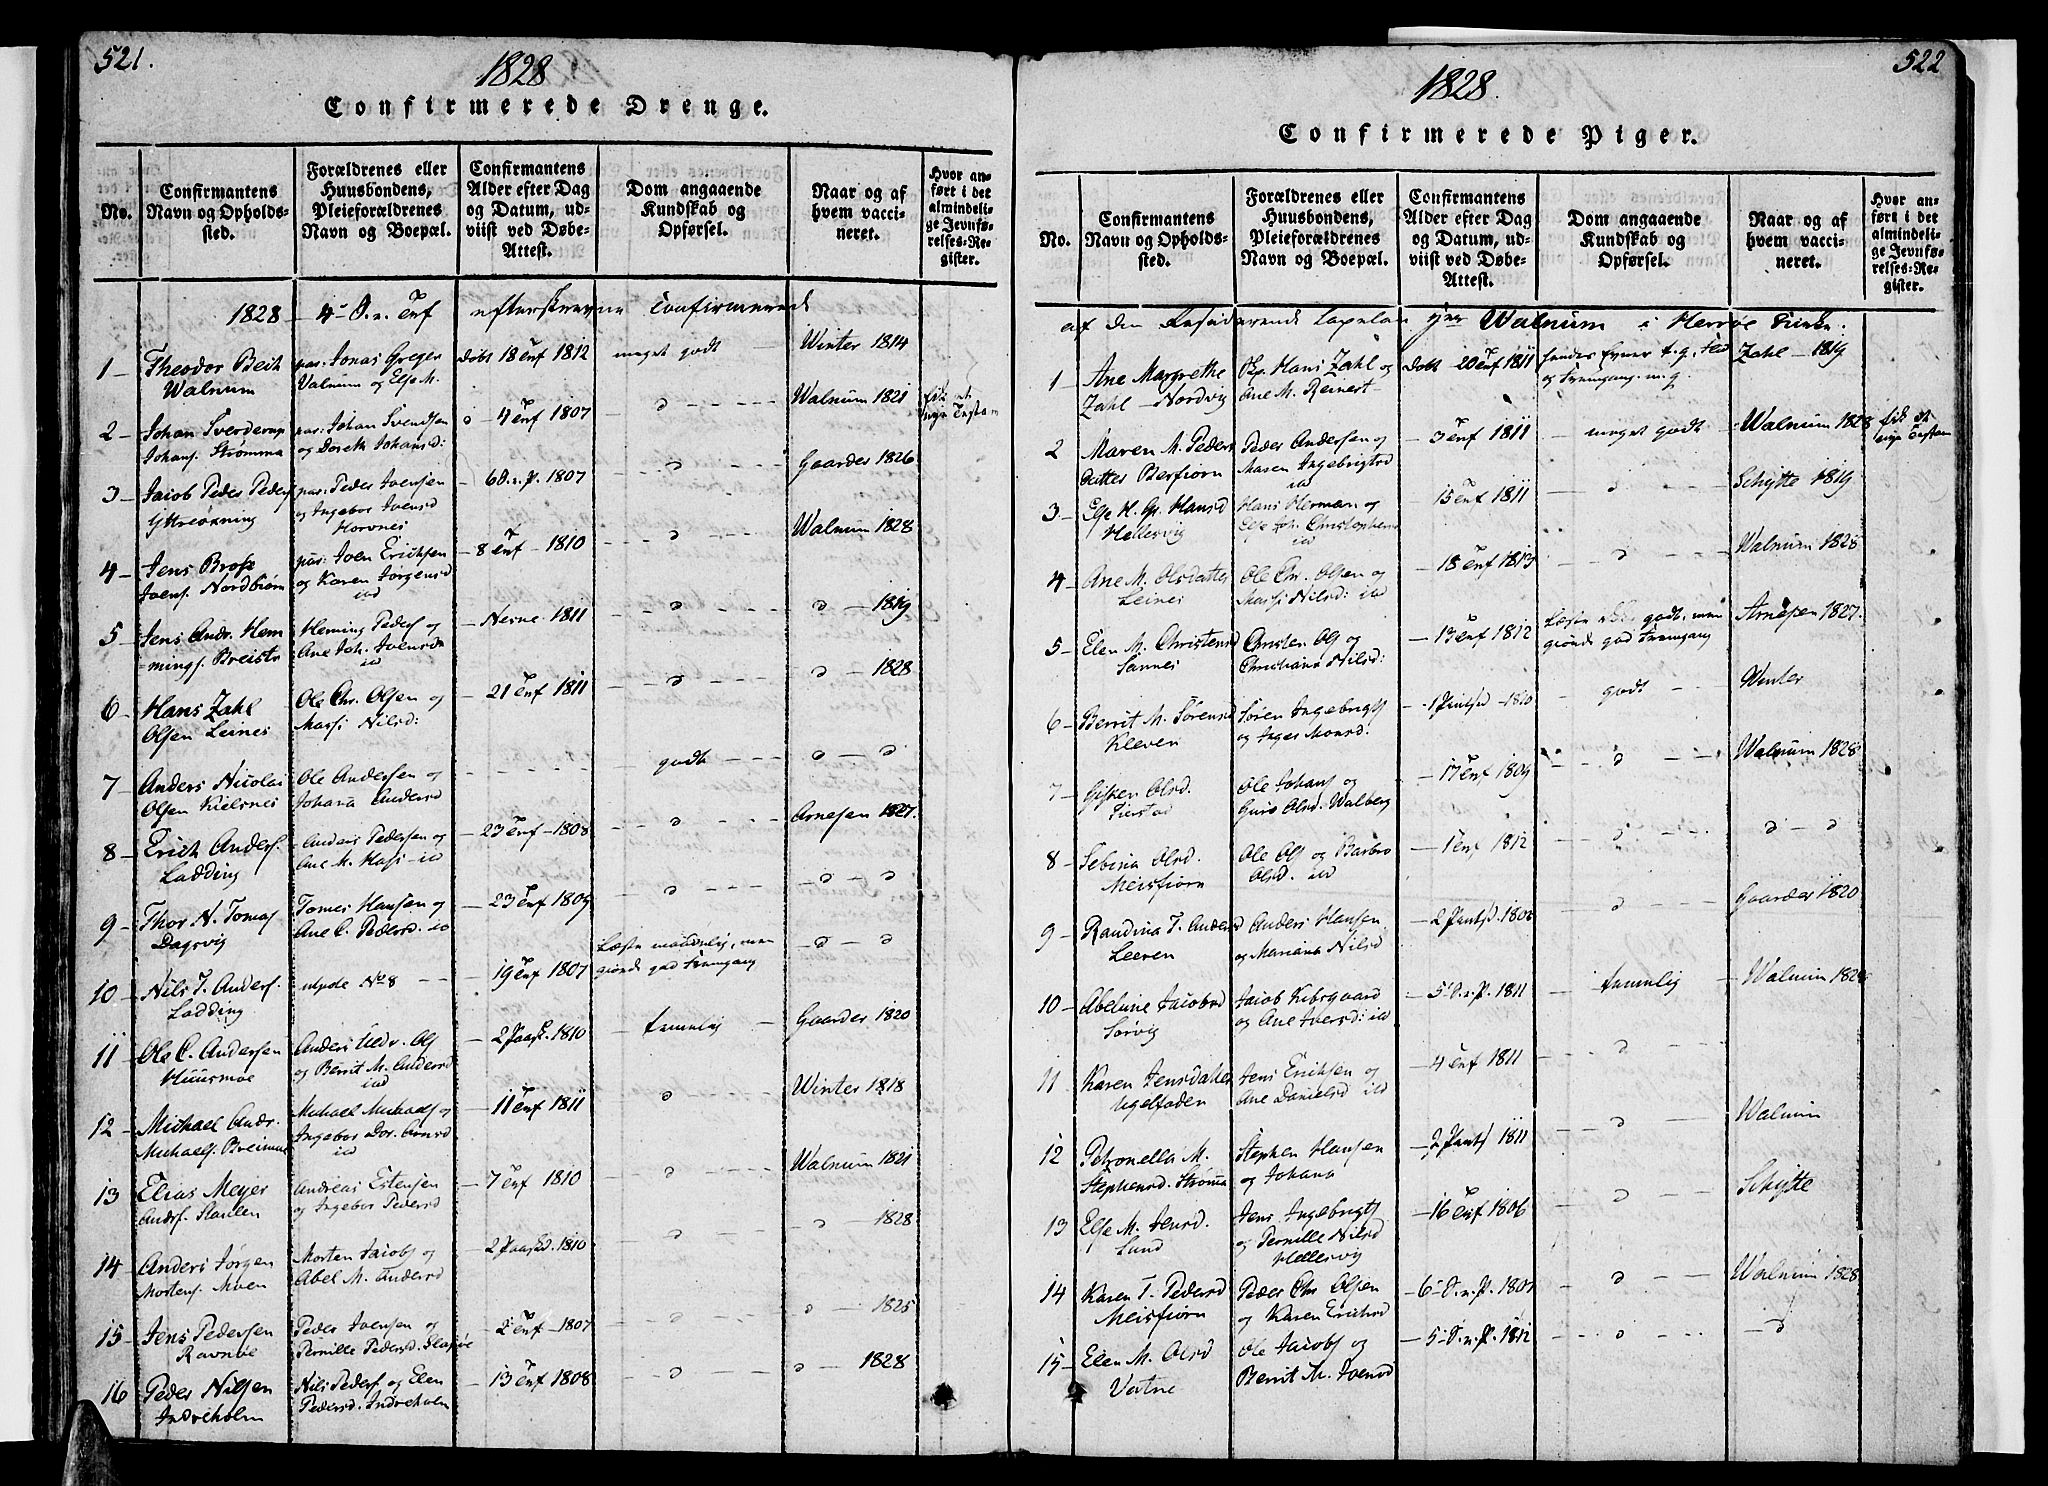 521.
1828
Confirmerede Drenge.
No.
Confirmantens Navn og Opholdssted.
Forældrenes eller Huusbondens, Pleieforældrenes Navn og Boepæl.
Confirmantens Alder efter Dag og Datum, udviist ved Døbe-Attest.
Dom angaaende Kundskab og Opførsel.
Naar og af hvem vaccineret.
Hvor anført i det almindelige Jevnførelses-Register.
1828 – 4 S. e. Trf efterskrevne Confirmerede
1 – Theodor Walnum par: Jonas Greger Walnum og Else M. Døbt 18 Trf 1812 meget godt – Winter 1814
2 – Johan Sverderup Johans. Strømma par: Johan Svendsen og Doreth Johansd: 4 Trf 1807 – Walnum 1821
3 – Jacob Peder Peders par: Peder Ivensen og Ingebor Ivensd Horvnes – 6 S. e. P. 1807 – Gaarder 1826
4 – Jens Ivens. Nordbiørn par: Iven Erichsen og Karen Jørgensd – 8 Trf – 1810 – Walnum 1828
5 – Jens Andr. Hemmings. Heming Peders og Ane Joh. Ivensd – 1811 – 1819
6 – Hans Zahl Olsen Leines Ole Chr. Olsen og Massi Nilsd: – 21 Trf 1811 – 1828
7 – Anders Nicolai Olsen Kielsnes Ole Andersen og Johana Andersd godt
8 – Erich Anders. Ladding Anders Pedersen og Ane M. – 23 Trf – 1808 Arnesen 1827.
9 – Thor N. Tomas Dagsvig Tomes Hansen og Ane C. Pedersd. – 23 Trf 1809
10 – Nils J. Anders. Ladding No 8 – 19 Trf 1807 Læste maadelig, men giorde god Fremgang
11 – Ole C. Andersen Huusmoe Anders Ols og Berrit M. Andersd – 2 Paask. 1810 – temelig – Gaarder 1820
12 – Michael Andr. Michaels. Michael Michaels og Ingebor – 11 Trf 1811 Winter 1818
13 – Elias Meyer Anders. Staulen Andreas Estensen og Ingebor Pedersd – 7 Trf 1810 Walnum 1821
14 – Anders Jørgen Mortens. Moen Morten Jacobs og Abel M. Andersd – 2 Paaskd. 1810 1828
15 – Jens Pedersen Ravnøe Peder Ivensen og Pernille Pedersd. – 2 Trf – 1807 – 1825
16 – Peder Nilsen Indreholm Nils Peders. og Elen Pedersd. Indreholm – 13 Trf 1808 – 1828
522
1828.
Confirmerede Piger.
No.
Confirmantens Navn og Opholdssted.
Forældrenes eller Huusbondens, Pleieforældrenes Navn og Boepæl.
Confirmantens Alder efter Dag og Datum, udviist ved Døbe-Attest.
Dom angaaende Kundskab og Opførsel.
Naar og af hvem vaccineret.
Hvor anført i det almindelige Jevnførelses-Register.
af den Residerende Capelan Walnum i Herrøe Kirke.
1 – Ane Margrethe Zahl – Nordvig Hans Zahl og Ane M. Reinert – Døbt – 20 Trf 1811 Zahl – 1819
2 – Maren M. Pedersdatter Peder Andersen og Maren Ingebrigtsd – 3 Trf 1811 – meget godt – Walnum 1828
3 – Else H. Hansd Hellesvig Hans Herman og Else Joh. Christophersd – 15 Trf 1811 – Schytte 1819
4 – Ane M. Olsdatter Leines Ole Chr. Olsen og Massi Nilsd: – 18 Trf 1813 – Walnum 1828
5 – Elen M. Christensd Sannes Christen Ols og Christiana Nilsd: – 13 Trf 1812 Læste godt, men giorde god Fremgang Arnesen 1827.
6 – Berrit M. Sørensd Kleven Søren Ingebrigts og Inger Monsd: – 1 Pintsd – 1810 – godt – Winter
7 – Gisken Olsd. Ole Johans og Guro Olsd. Walberg – 17 Trf 1809 – Walnum 1828
8 – Sebina Olsd. Meisfiorn Ole Ols og Barbro Olsd. – 1 Trf 1812
9 – Randina J. Andersd Leeren Anders Hansen og Mariana Nilsd – 2 Pintsd. – Gaarder 1820
10 – Abelone Jacobsd Sørvig Jacob Kibsgaard og Ane Iversd: – 5 S. e. P. 1811 – temelig – Walnum 1828
11 – Karen Jensdatter Ugelfaden Jens Erichsen og Ane Danielsd – 4 Trf 1811
12 Petronella M. Stephensd. Strømma Stephen Hansen og Johana – 2 Pintsd 1811 Walnum
13 Else M. Jensd. Lund Jens Ingebrigts og Pernille Nilsd Hellesvig – 16 Trf 1806 Schytte
14 Karen T. Pedersd Meisfiorn Peder Chr Olsen og Karen Erichsd – 6 S. e. P. 1807 Walnum 1828
15 – Elen M. Olsd Vatne Ole Jacobs og Berrit M. Ivensd – 5 S. e. P. 1812